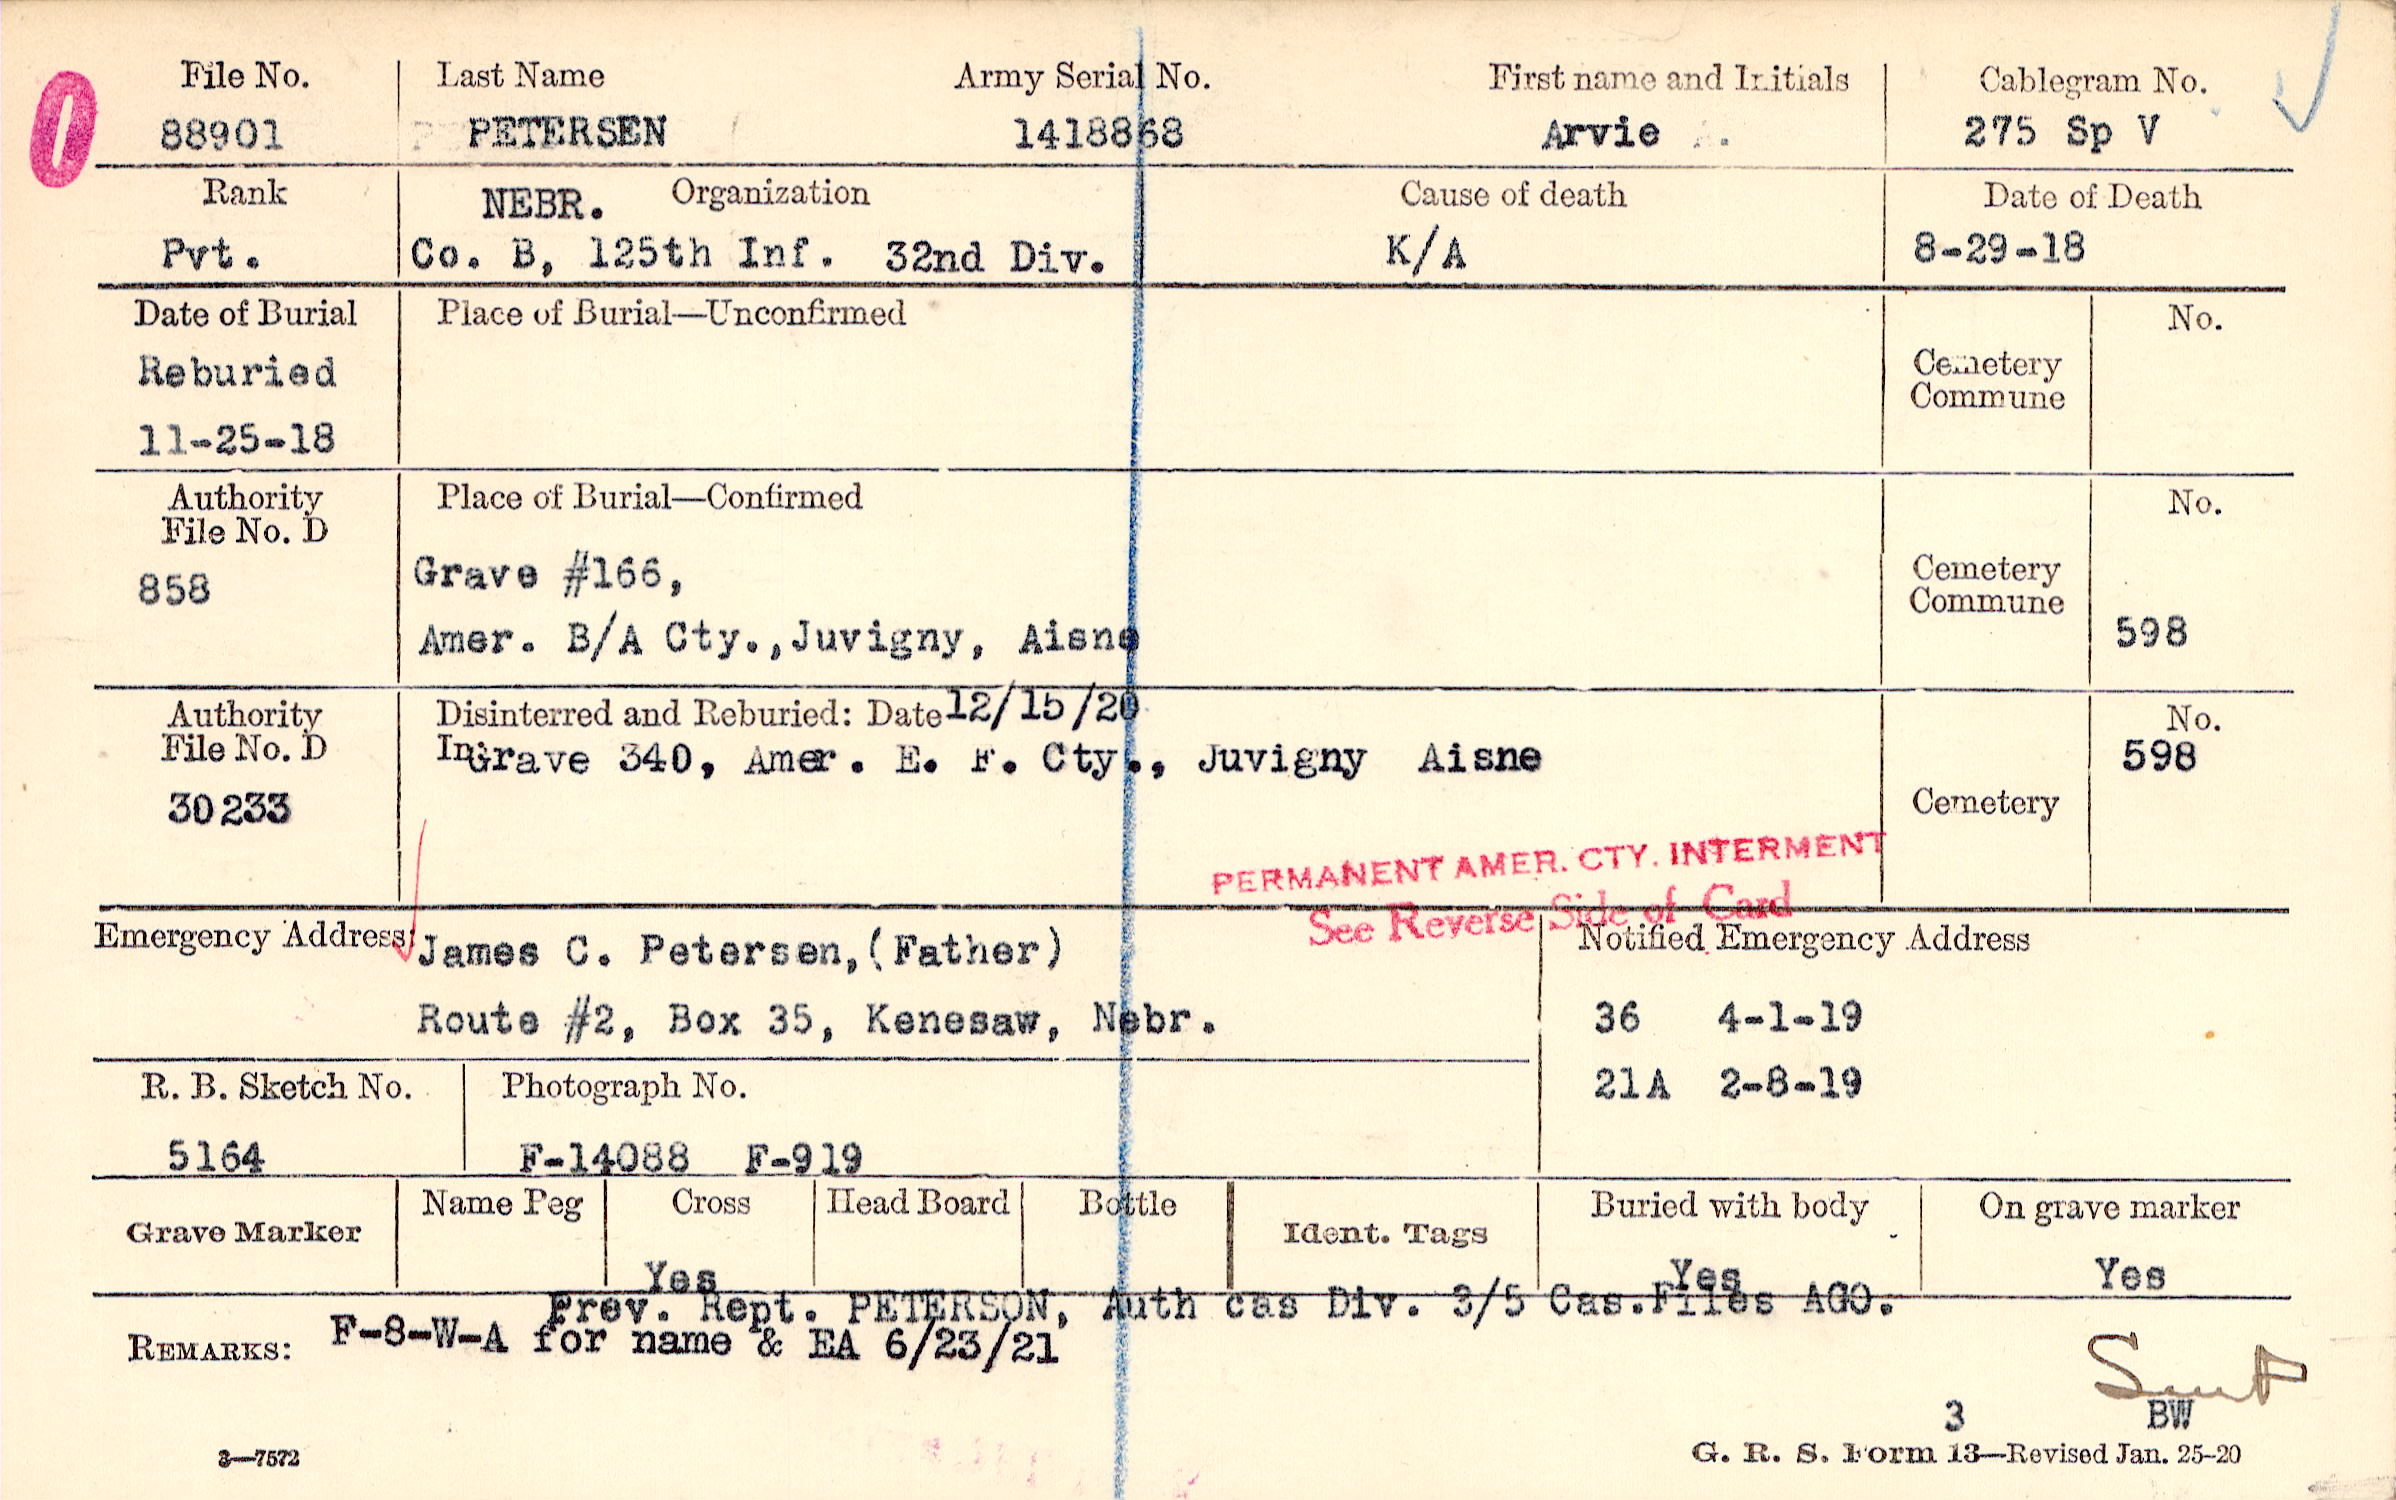 File No. Last Name Army Serial No. First name and Initials Cablegram No.
88901 PETERSEN 1418868 Arvie A. 275 Sp V
Rank NEBR. Organization Cause of death Date of Death
Pvt. Co. B, 125th Inf. 32nd Div. K/A 8-29-18
Date of Burial Place of Burial—Unconfirmed No.
Reburied Cemetery
Commune
11-25-18
Authority Place of Burial—Confirmed No.
File No. D
858 Grave #166, Cemetery
Commune
Amer. B/A Cty.,Juvigny, Aisne 598
Authority Disinterred and Reburied: Date 12/15/20 No.
File No. D In Grave 340, Amer. E. F. Cty., Juvigny Aisne 598
30233 Cemetery
PERMANENT AMER. CTY. INTERMENT
See Reverse Side of Card
Emergency Address: James C. Petersen,(Father) Notified Emergency Address
Route #2, Box 35, Kenesaw, Nebr. 36 4-1-19
21A 2-8-19
R. B. Sketch No. Photograph No.
5164 F-14088 F-919
Grave Marker Name Peg Cross Head Board Bottle Ident. Tags Buried with body On grave marker
Yes Yes Yes
Prev. Rept. PETERSON, Auth cas Div. 3/5 Cas.Files AGO.
REMARKS: F-8-W-A for name & EA 6/23/21
3 BW
3—7572 G. R. S. Form 13—Revised Jan. 25-20